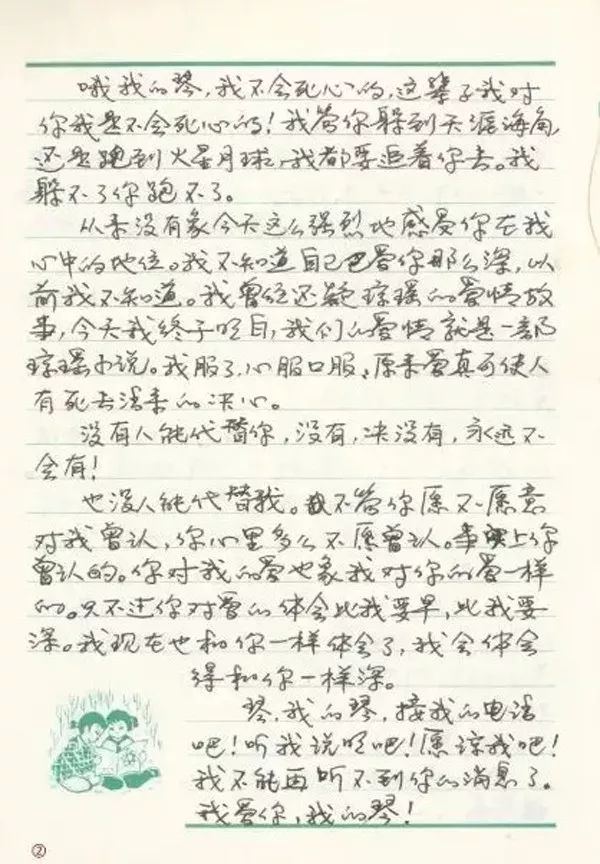 哦我的琴，我不会死心的，这辈子我对
你我是不会死心的！我管你躲到天涯海角，
还是跑到火星月球，我都要追着你去。我
躲不了你跑不了。
从来没有象今天这么强烈地感受你在我
心中的地位。我不知道自己已爱你那么深，以
前我不知道。我曾经还疑琼瑶的爱情故
事，今天我终于明白，我们的爱情就是一部
琼瑶小说。我服了，心服口服，原来爱真可使人
有死去活来的决心。
没有人能代替你，没有，决没有，永远不
会有！
也没人能代替我。我不管你愿不愿意
对我曾认，你心里多么不愿曾认。事实上你
曾认的。你对我的爱也象我对你的爱一样
的。只不过你对爱的体会比我要早，比我要
深。我现在也和你一样体会了，我会体会
得和你一样深。
琴，我的琴，接我的电话
吧！听我说明吧！愿谅我吧！
我不能再听不到你的消息了。
我爱你，我的琴！
②